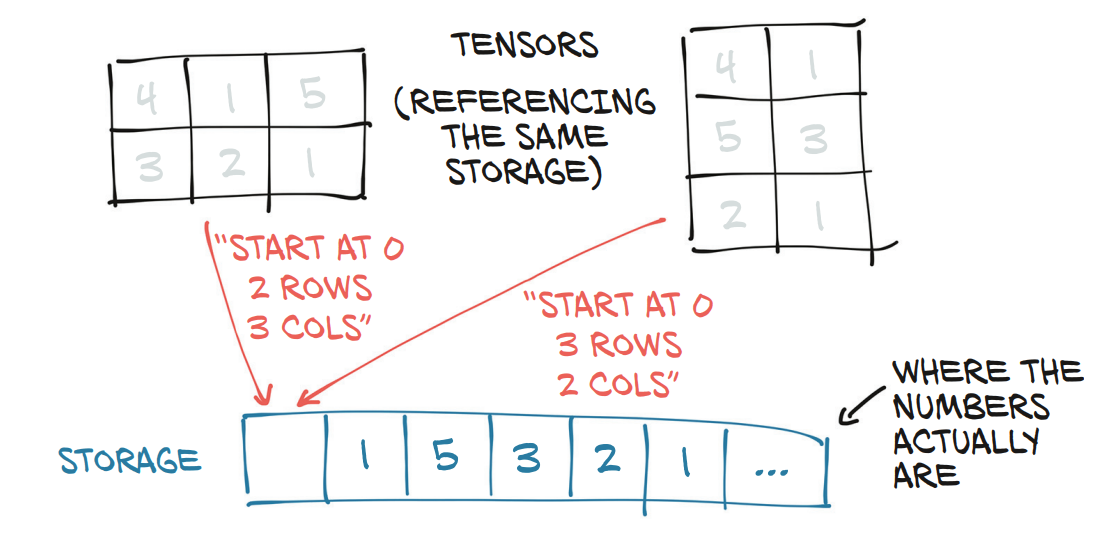 TENSORS
(REFERENCING
THE SAME
STORAGE)
4 1 5
3 2 1
4 1
5 3
2 1
"START AT 0
2 ROWS
3 COLS"
"START AT 0
3 ROWS
2 COLS"
WHERE THE
NUMBERS
ACTUALLY
ARE
STORAGE
1 5 3 2 1 ...